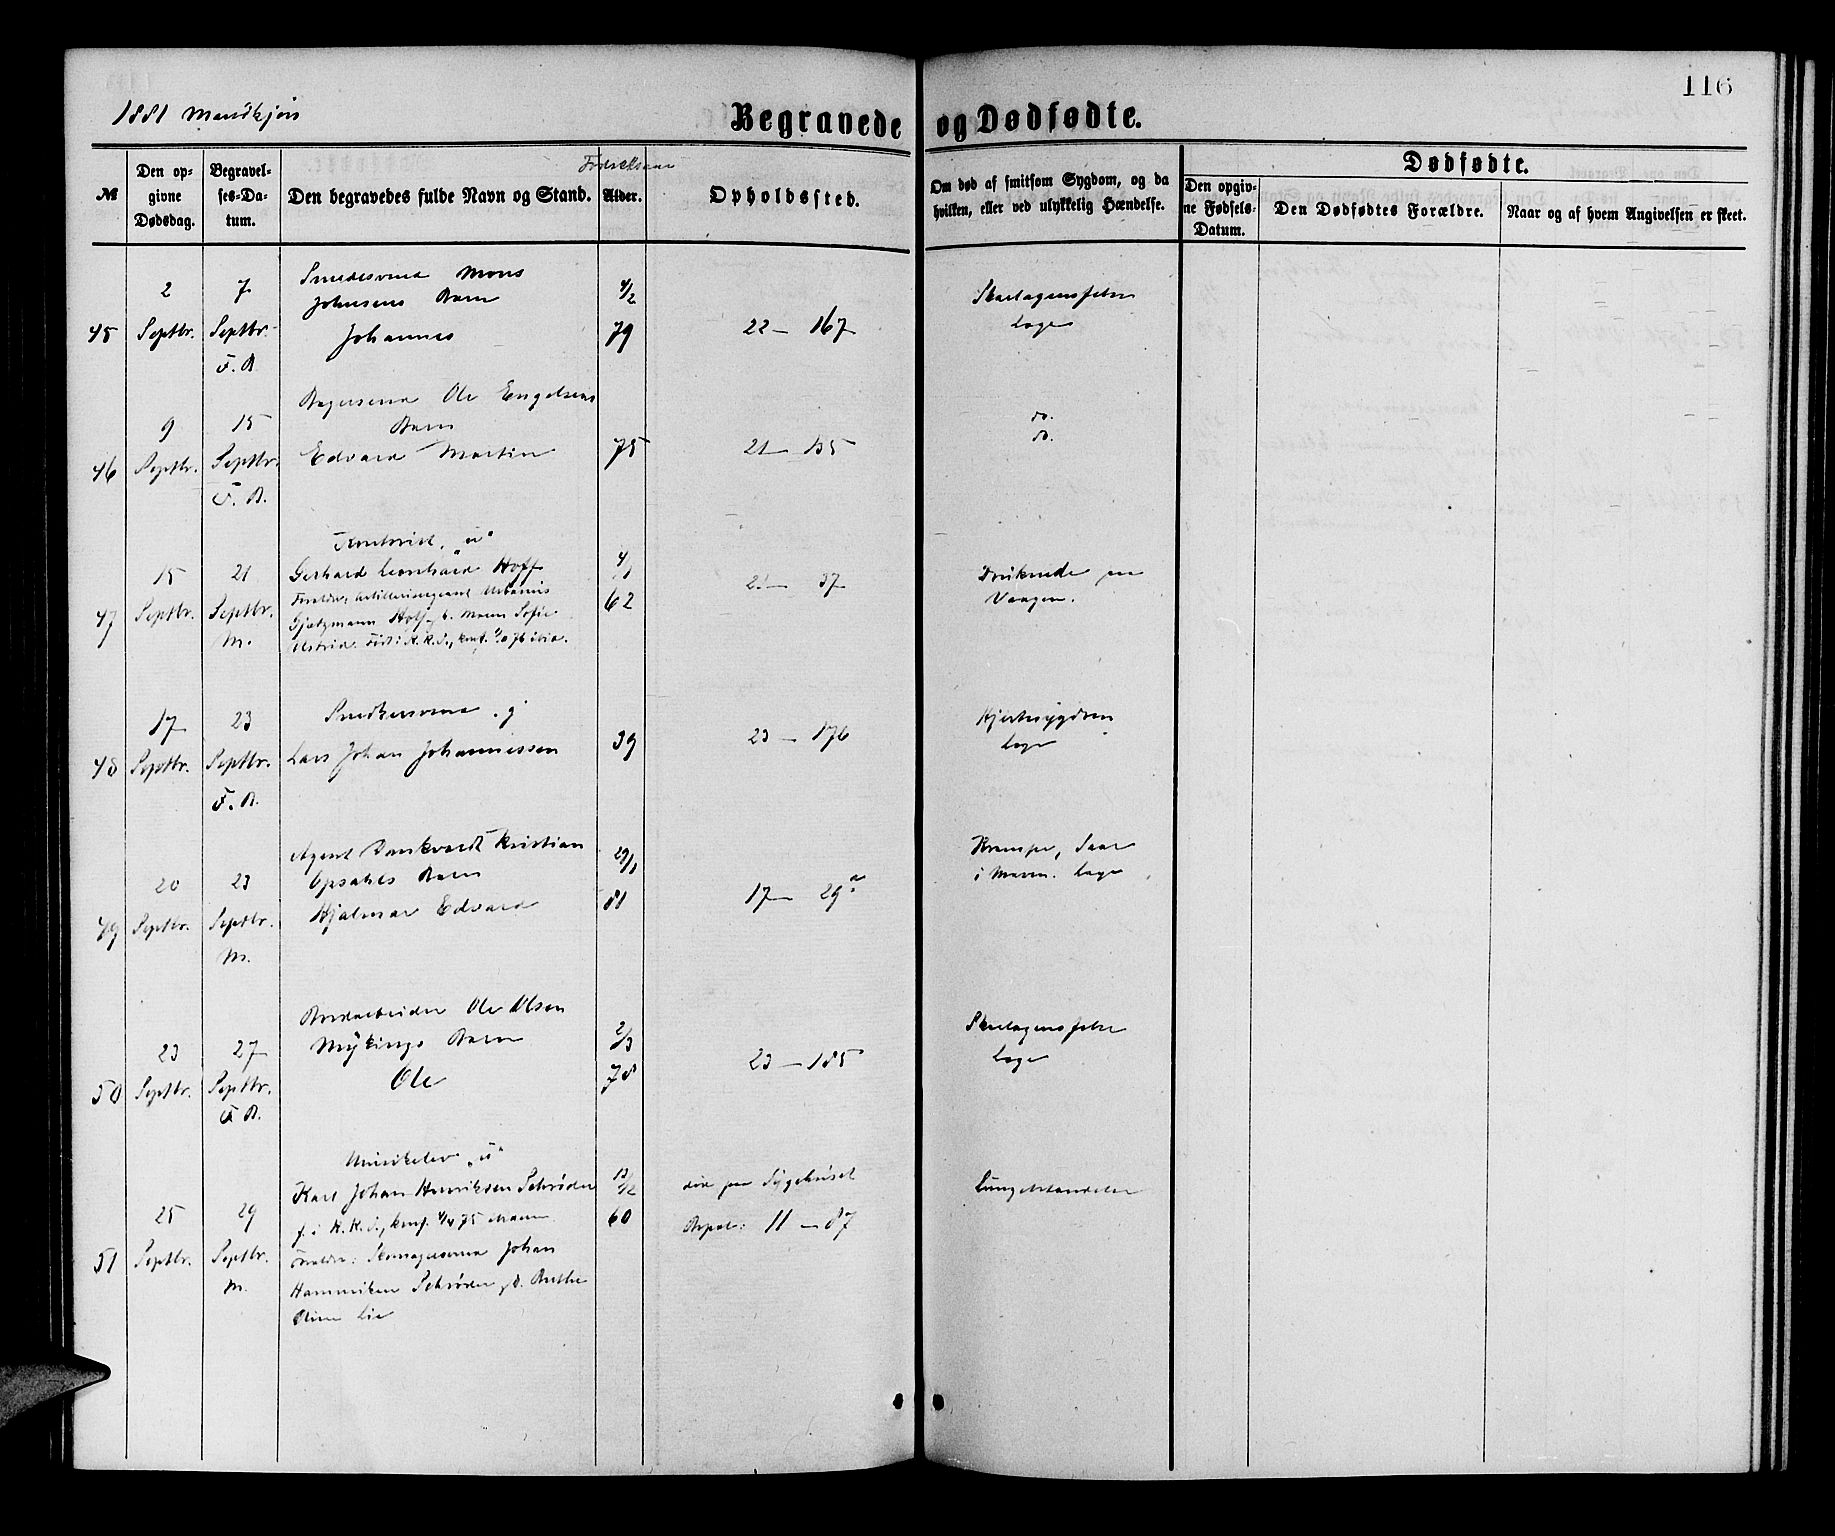 116
1881 Mandkjøn
Begravede og Dødfødte.
№
Den op-
givne
Dødsdag.
Begravel-
ses-Da-
tum.
Den begravedes fulde Navn og Stand.
Fødselsaar
Alder.
Opholdssted.
Om død af smitsom Sygdom, og da
hvilken, eller ved ulykkelig Hændelse.
Dødfødte.
Den opgiv-
ne Fødsels-
Datum.
Den Dødfødtes Forældre.
Naar og af hvem Angivelsen er skeet.
45
2
Septbr.
7
Septbr.
F. B.
Smedesvend Mons
Johnsens Barn
Johannes
4/2
79
22 — 167
Skarlagensfeber
Læge
46
9
Septbr.
15
Septbr.
F. B.
Bagersvend Ole Engelsens
Barn
Edvard Martin
75
21 — 135
do.
do.
47
15
Septbr.
21
Septbr.
M.
Kontorist, "u"
Gerhard Leonhard Hoff
Gjetzmann Hoff og h. Maren Sofie
4/1
62
37
Druknede paa
Vaagen.
48
17
Septbr.
23
Septbr.
F. B.
Snedkersvend. g
Lars Johan Johannessen
39
23 — 176
Hjertesygdom
Læge
49
20
Septbr.
23
Septbr.
M.
Agent Dankvardt Kristian
Opsahls Barn
Hjalmar Edvard
29/1
81
17 — 29a
Krampe, Saar
i Maven. Læge
50
23
Septbr.
27
Septbr.
F. B.
Ole Olsen
Mykings Barn
Ole
2/3
78
23 — 185
Skarlagensfeber
Læge
51
25
Septbr.
29
Septbr.
M.
Musikelev "u"
Karl Johan Henriksen Schrøder
f. i K. K. d., konf. 4/4 75
Forældre: Skomagersvend Johan
Schrøder
Oline Lie
13/12
60
død paa Sygehuset
Bopæl: 11 — 87
Lungebetændelse